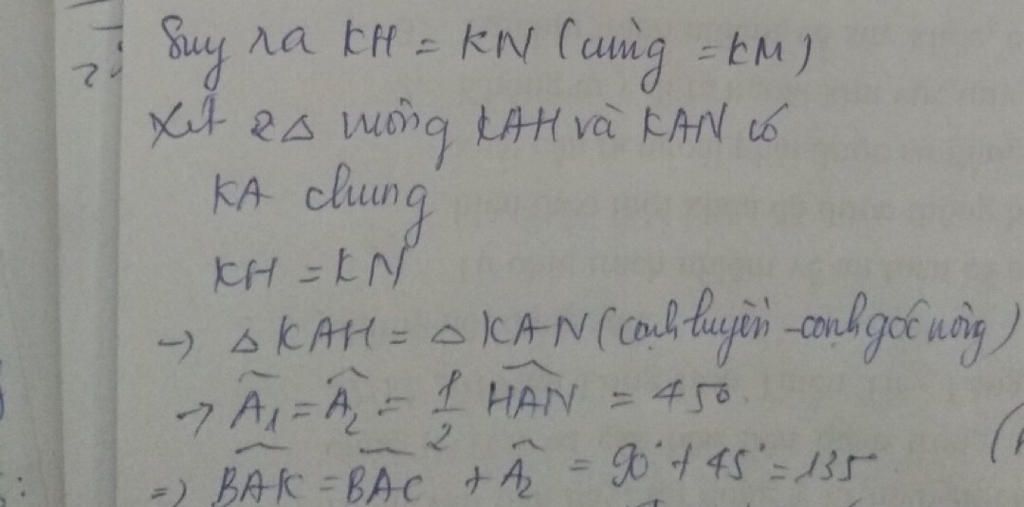 Suy ra KH = KN (cùng = KM)
Xét 2 △ vuông KAH và KAN có
KA chung
KH = KN
→ △ KAH = △ KAN (cạnh huyền - cạnh góc vuông)
→ Â₁ = Â₂ = 1/2 HAN = 45°
⇒ BAK = BAC + Â₂ = 90° + 45° = 135°